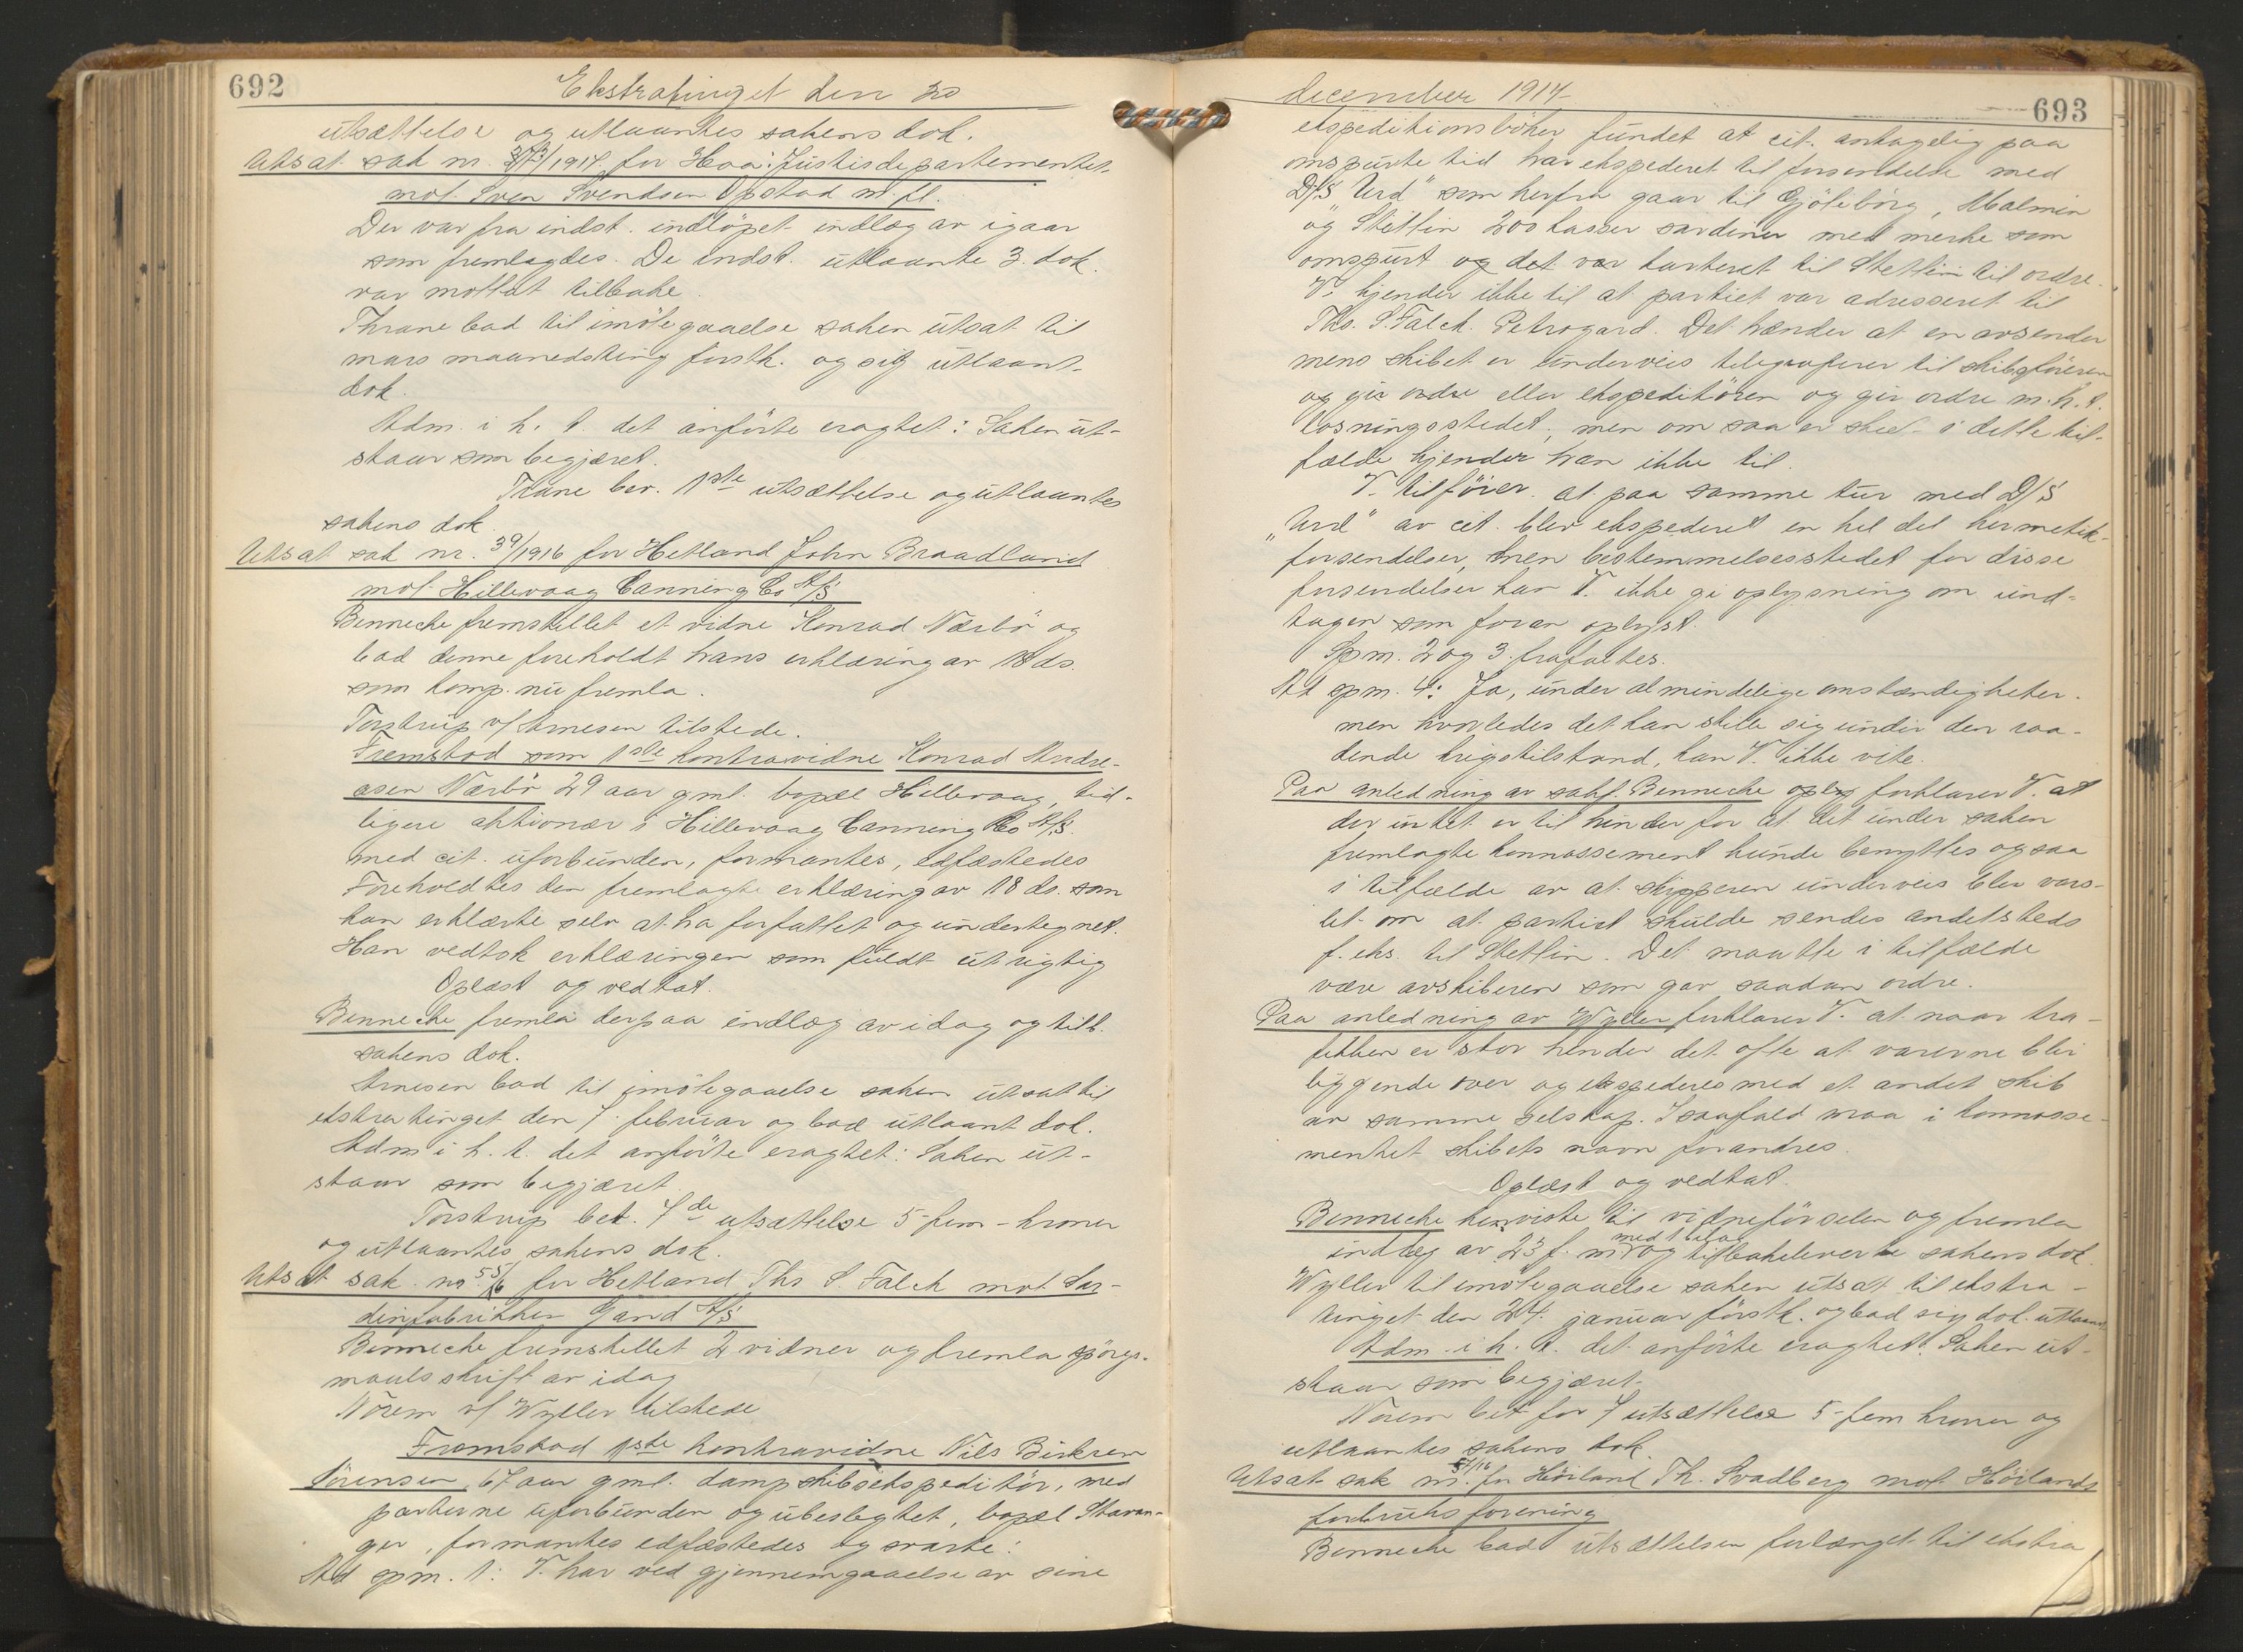 692
Ekstratinget den 20
utsættelse og utlaantes sakens dok.
Utsat sak nr. /1917 for Haa: Justisdepartementet
mot Sven Svendsen Opstad m. fl.
Der var fra indst. indløpet indlæg av igaar
som fremlagdes. De indst. utlaante 3. dok.
var mottat tilbake.
Thrane bad til imøtegaaelse saken utsat til
mars maanedsting førstk. og sig utlaant
dok.
Adm. i h. t. det anførte eragtet: Saken ut-
staar som begjæret.
Trane ber. 1ste utsættelse og utlaantes
sakens dok.
Utsat sak nr. 39/1916 for Hetland John Braadland
mot Hillevaag Canning Co A/S
Benneche fremstillet et vidne Konrad Nærbø og
bad denne foreholdt hans erklæring av 18 ds.
som komp. nu fremla.
Torstrup v/ Arnesen tilstede.
Fremstod som 1ste kontravidne Konrad Andre-
asen Nærbø 29 aar gml. bopæl Hillevaag, tid-
ligere aktionær i Hillevaag Canning Co A/S.
med cit. uforbunden, formantes, edfæstedes
Foreholdtes den fremlagte erklæring av 18 ds. som
han erklærte selv at ha forfattet og undertegnet.
Han vedtok erklæringen som fuldt ut rigtig
Oplæst og vedtat.
Bennecke fremla derpaa indlæg av idag og tilb.
sakens dok.
Arnesen bad til imøtegaaelse saken utsat til
ekstratinget den 7. februar og bad utlaant dok.
Adm i h. t. det anførte eragtet: Saken ut-
staar som begjæret
Torstrup bet. 7de utsættelse 5 - fem - kroner
og utlaantes sakens dok.
Utsat sak nr. 55/16 for Hetland Ths S. Falck mot Sar-
dinfabrikken Gand A/S
Bennecke fremstillet 2 vidner og fremla spörgs-
maalsskrift av idag
Norem v/ Wyller tilstede
Fremstod 1ste kontravidne Nils Birkrem
Sörensen, 67 aar gml. dampskibsekspeditör, med
parterne uforbunden og ubeslegtet, bopæl Stavan-
ger, formantes edfæstedes og svarte:
Ad spm. 1: V. har ved gjennemgaaelse av sine
december 1917
693
ekspeditionsböker fundet at cit. antagelig paa
omspurte tid har ekspederet til forsendelse med
D/S "Urd" som herfra gaar til Gjöteborg, Malmø
og Stettin 200 kasser sardiner med merke som
omspurt og det var karteret til Stettin til ordre.
V. kjender ikke til at partiet var adresseret til
Ths. S. Falck. Petrogard. Det hænder at en avsender
mens skibet er underveis telegraferer til skibsføreren
og gir ordre eller ekspeditören og gir ordre m. h. t.
losningsstedet, men om saa er skeet i dette til-
fælde kjender han ikke til.
V. tilföier. at paa samme tur med D/S
"Urd" av cit. blev ekspederet en hel del hermetik-
forsendelser, men bestemmelsesstedet for disse
forsendelser kan V. ikke gi oplysning om und-
tagen som foran oplyst.
Spm. 2 og 3. frafaltes.
Ad spm. 4: Ja, under almindelige omstændigheter.
men hvorledes det kan stille sig under den raa-
dende krigstilstand, kan V. ikke vite.
Paa anledning av sakf. Bennecke oply forklarer V. at
der intet er til hinder for at det under saken
fremlagte konnossement kunde benyttes ogsaa
i tilfælde av at skipperen underveis blev vars-
let om at partiet skulde sendes andetsteds
f. eks. til Stettin. Det maatte i tilfælde
være avskiberen som gav saadan ordre.
Paa anledning av Wyller forklarer V. at naar tra-
fikken er stor hender det ofte at varerne blir
liggende over og ekspederes med et andet skib
av samme selskap. I saafald maa i konnosse-
mentet skibets navn forandres.
Oplæst og vedtat.
Bennecke henviste til vidneförselen og fremla
indlæg av 23 f. m. og tilbakeleverte sakens dok.
Wyller til imötegaaelse saken utsat til ekstra-
tinget den 24. januar förstk. og bad sig dok. utlaant
Adm. i h. t. det anförte eragtet: Saken ut-
staar som begjæret.
Norem bet for 7 utsættelse 5 - fem kroner og
utlaantes sakens dok.
Utsat sak nr. for Höiland Th. Svadberg mot Höilands
forbruksforening
Bennecke bad utsættelsen forlænget til ekstra